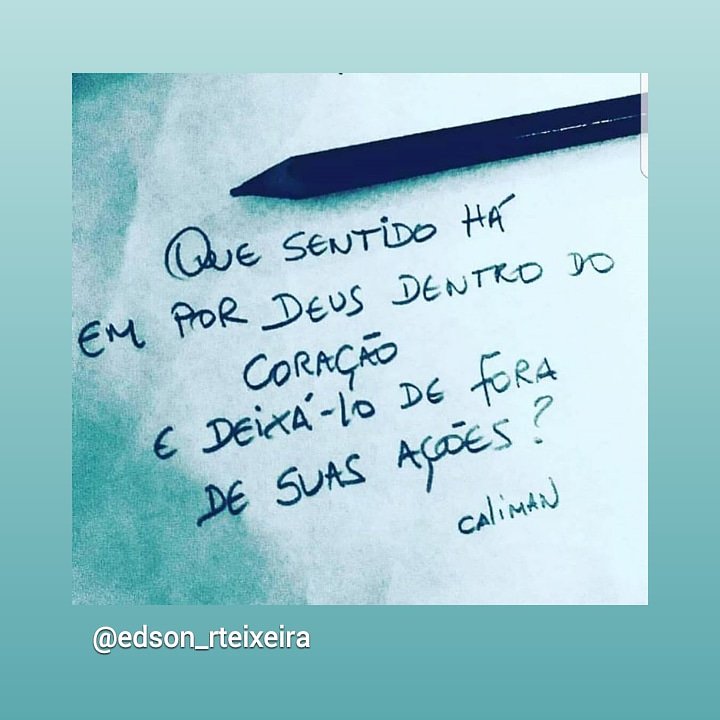 QUE SENTIDO HÁ
EM POR DEUS DENTRO DO
CORAÇÃO
E DEIXÁ-LO DE FORA
DE SUAS AÇÕES?
CALIMAN
@edson_rteixeira